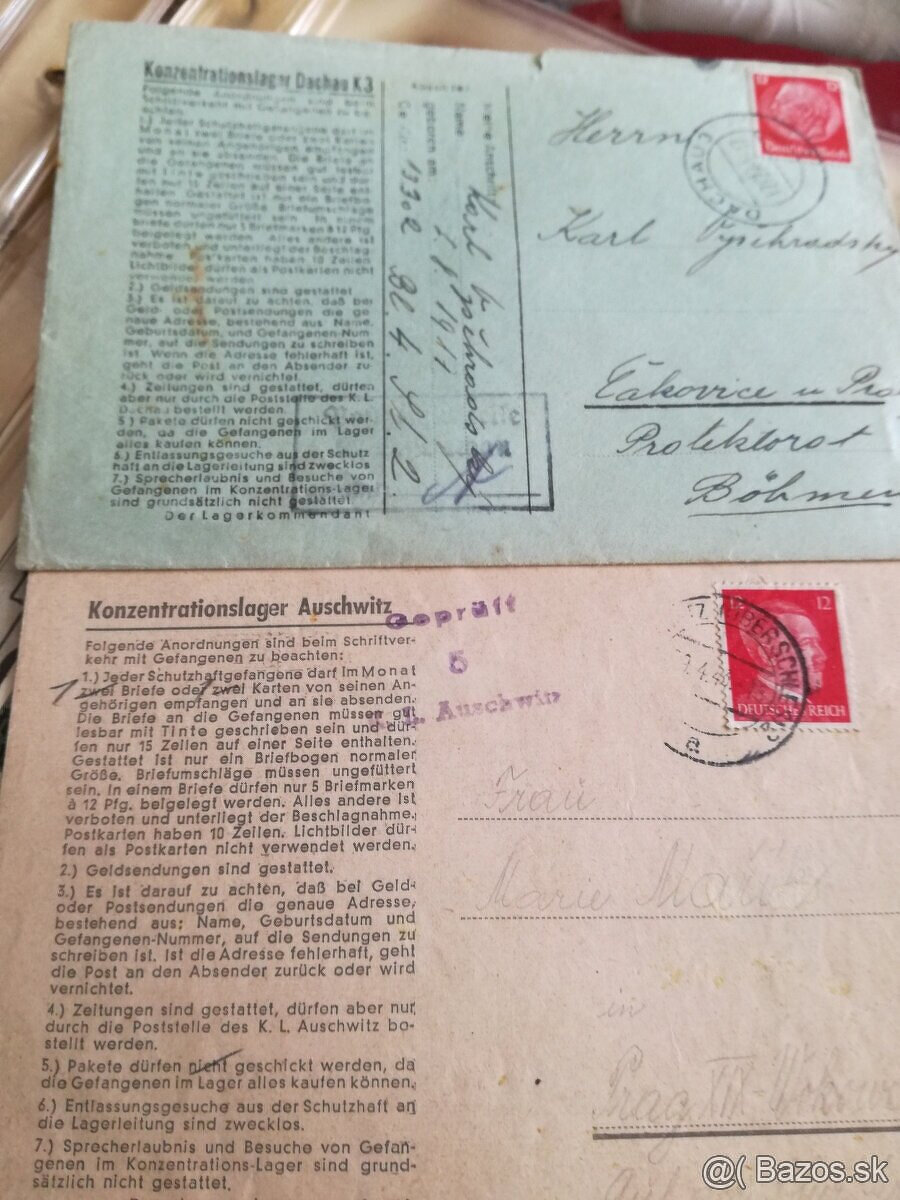 Konzentrationslager Dachau K3
Folgende Anordnungen sind beim
Schriftverkehr mit Gefangenen zu be-
achten:
1.) Jeder Schutzhaftgefangene darf im
Monat zwei Briefe oder zwei Karten
von seinen Angehörigen empfangen
und an sie absenden. Die Briefe an
die Gefangenen müssen gut lesbar
mit Tinte geschrieben sein und dür-
fen nur 15 Zeilen auf einer Seite ent-
halten. Gestattet ist nur ein Briefbo-
gen normaler Größe. Briefumschläge
müssen ungefüttert sein. In einem
Briefe dürfen nur 5 Briefmarken à 12 Pfg.
beigelegt werden. Alles andere ist
verboten und unterliegt der Beschlag-
nahme. Postkarten haben 10 Zeilen.
Lichtbilder dürfen als Postkarten nicht
verwendet werden.
2.) Geldsendungen sind gestattet.
3.) Es ist darauf zu achten, daß bei
Geld- oder Postsendungen die ge-
naue Adresse, bestehend aus Name,
Geburtsdatum, und Gefangenen-Num-
mer, auf die Sendungen zu schreiben
ist. Wenn die Adresse fehlerhaft ist,
geht die Post an den Absender zu-
rück oder wird vernichtet.
4.) Zeitungen sind gestattet, dürfen
aber nur durch die Poststelle des K. L.
Dachau bestellt werden.
5.) Pakete dürfen nicht geschickt wer-
den, da die Gefangenen im Lager
alles kaufen können.
6.) Entlassungsgesuche aus der Schutz
haft an die Lagerleitung sind zwecklos
7.) Sprecherlaubnis und Besuche von
Gefangenen im Konzentrations-Lager
sind grundsätzlich nicht gestattet.
Der Lagerkommandant
Name
geboren am
Karl
Bl. 4
12 12
Deutsches Reich
DACHAU
Herrn
Karl Vyšehradský
Čakovice u
Protektorat
Böhmen
Konzentrationslager Auschwitz
Folgende Anordnungen sind beim Schriftver-
kehr mit Gefangenen zu beachten:
1.) Jeder Schutzhaftgefangene darf im Monat
zwei Briefe oder zwei Karten von seinen An-
gehörigen empfangen und an sie absenden.
Die Briefe an die Gefangenen müssen gut
lesbar mit Tinte geschrieben sein und dür-
fen nur 15 Zeilen auf einer Seite enthalten.
Gestattet ist nur ein Briefbogen normaler
Größe. Briefumschläge müssen ungefüttert
sein. In einem Briefe dürfen nur 5 Briefmarken
à 12 Pfg. beigelegt werden. Alles andere ist
verboten und unterliegt der Beschlagnahme.
Postkarten haben 10 Zeilen. Lichtbilder dür-
fen als Postkarten nicht verwendet werden.
2.) Geldsendungen sind gestattet.
3.) Es ist darauf zu achten, daß bei Geld-
oder Postsendungen die genaue Adresse,
bestehend aus: Name, Geburtsdatum und
Gefangenen-Nummer, auf die Sendungen zu
schreiben ist. Ist die Adresse fehlerhaft, geht
die Post an den Absender zurück oder wird
vernichtet.
4.) Zeitungen sind gestattet, dürfen aber nur
durch die Poststelle des K. L. Auschwitz be-
stellt werden.
5.) Pakete dürfen nicht geschickt werden, da
die Gefangenen im Lager alles kaufen können.
6.) Entlassungsgesuche aus der Schutzhaft an
die Lagerleitung sind zwecklos.
7.) Sprecherlaubnis und Besuche von Gefan-
genen im Konzentrations-Lager sind grund-
sätzlich nicht gestattet.
Geprüft
5
K. L. Auschwitz
12
DEUTSCHES REICH
Frau
Marie
in
Prag
@( Bazos.sk